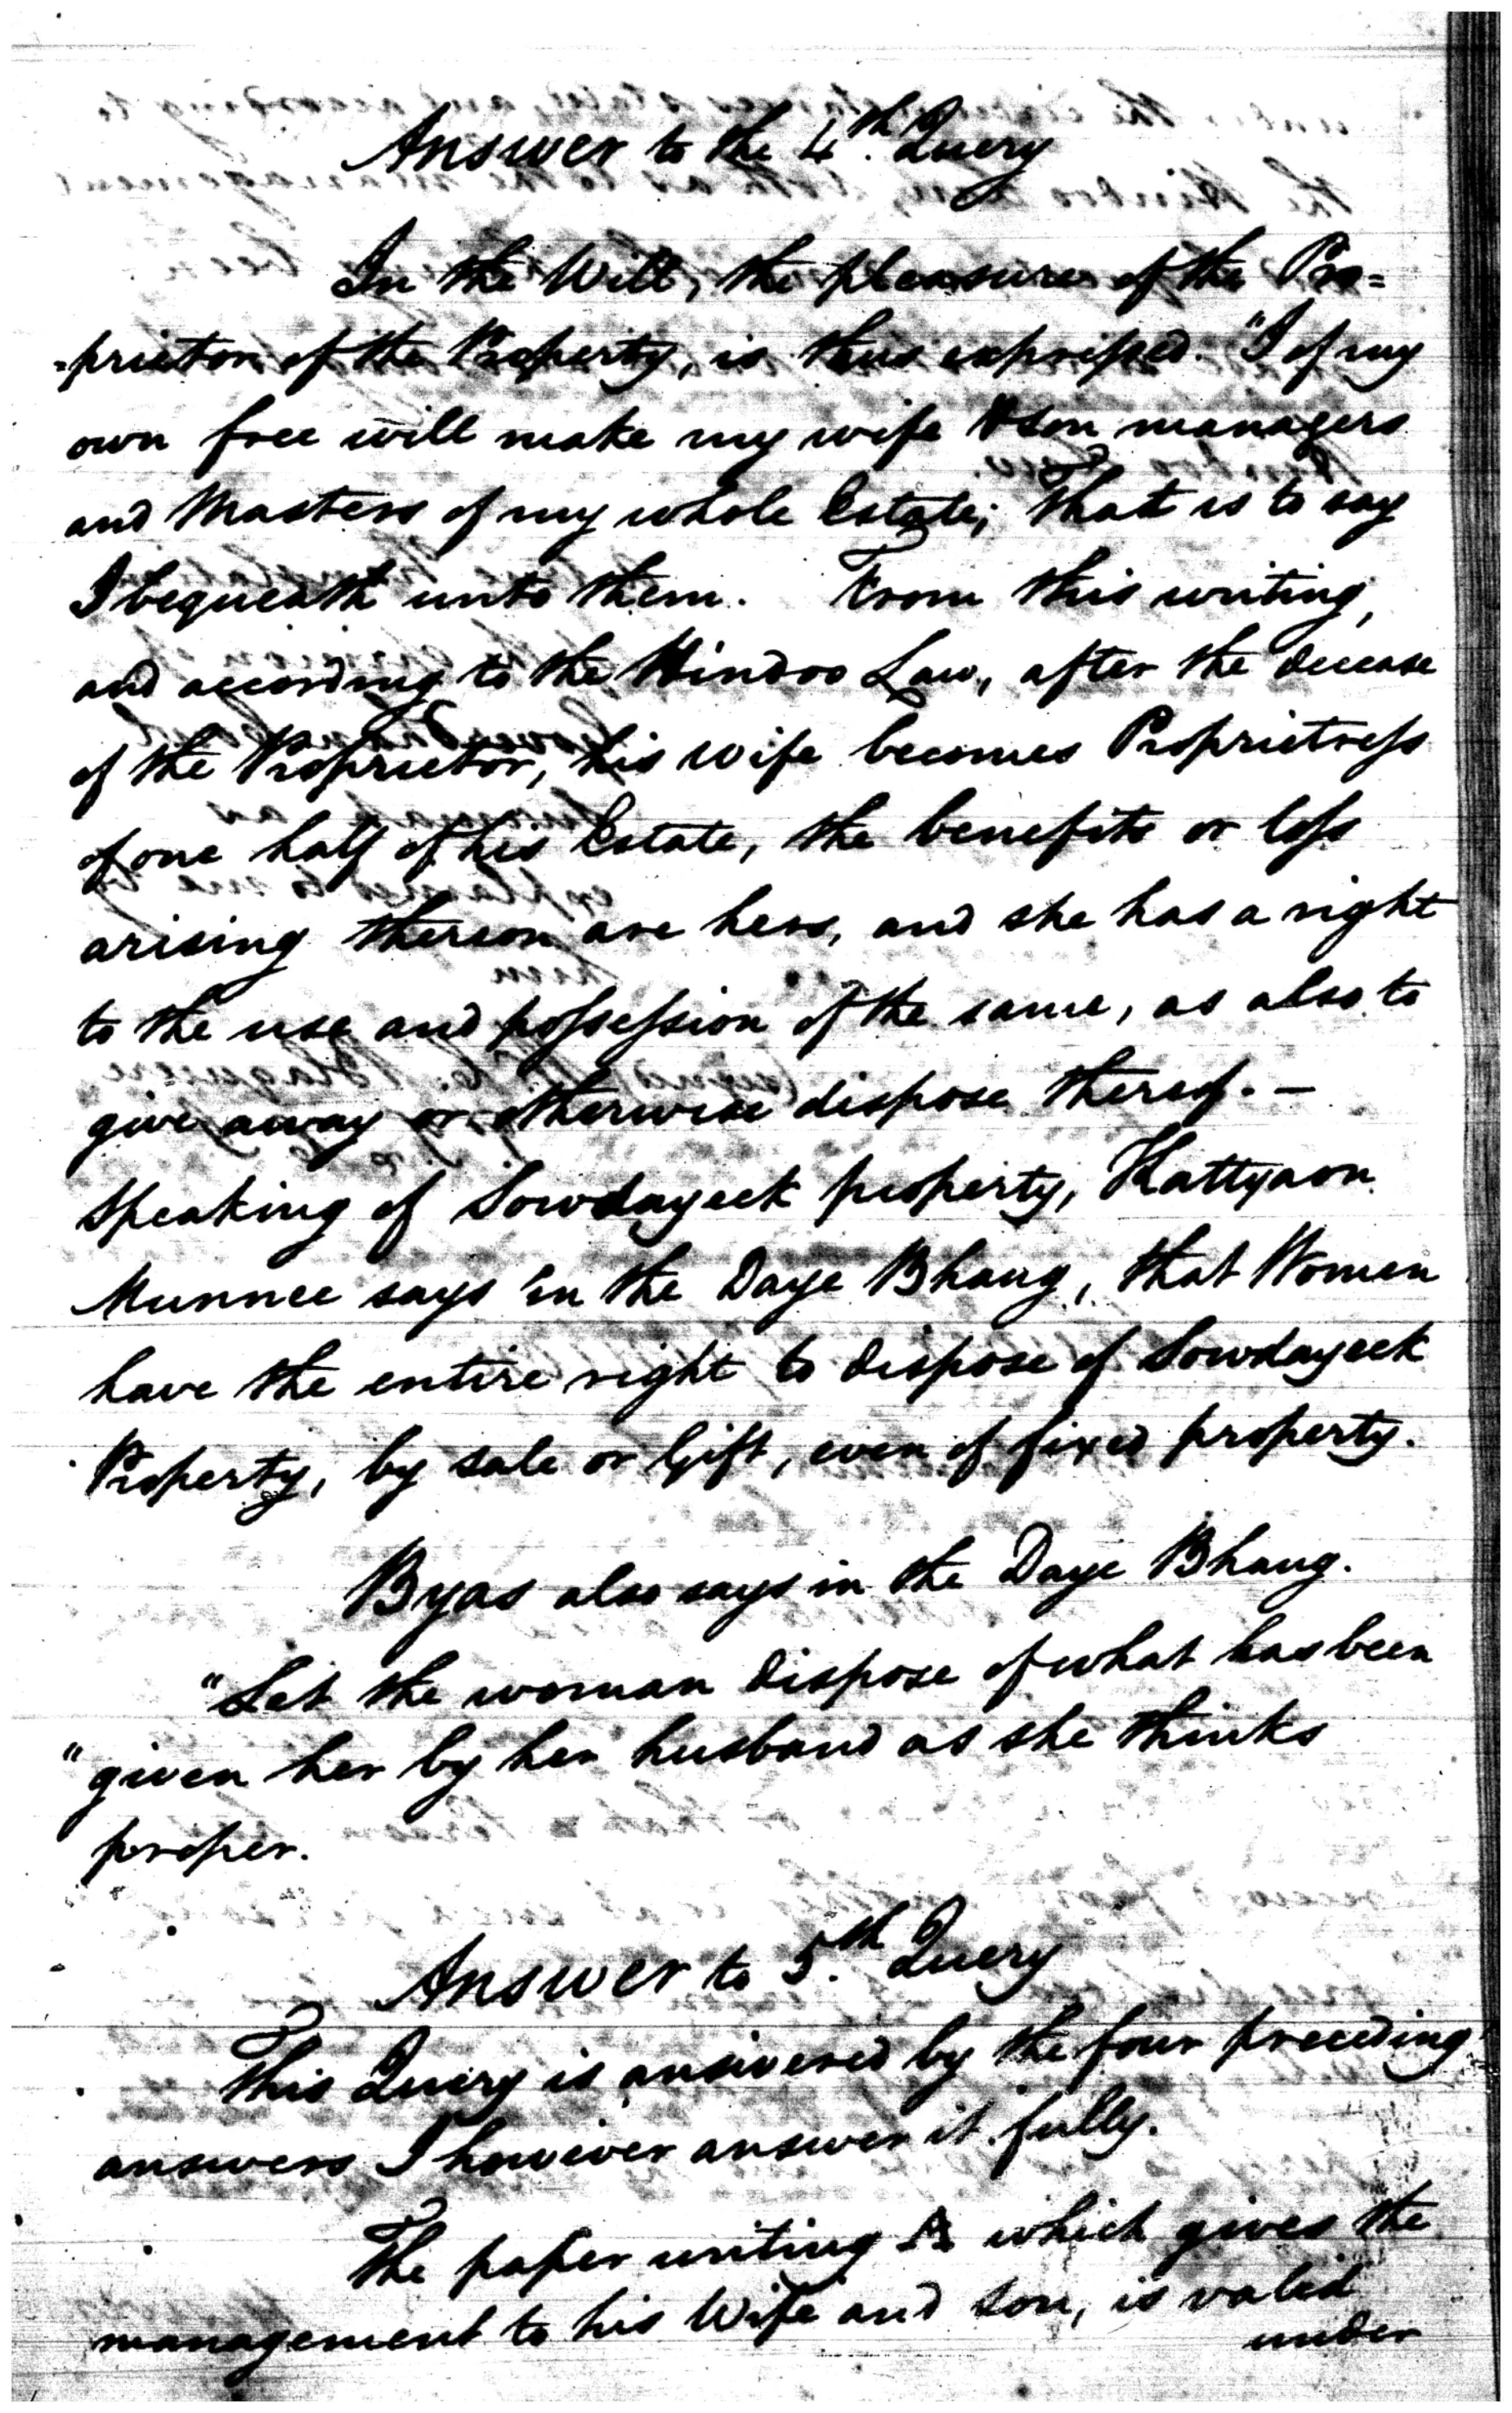 Answer to the 4th. Query
In the Will, the pleasure of the Pro=
=prietor of the Property, is thus expressed. "I of my
own free will make my wife & son managers
and Masters of my whole Estate; that is to say
I bequeath unto them. From this writing,
and according to the Hindoo Law, after the decease
of the Proprietor, his wife becomes Proprietress
of one half of his Estate, the benefits or loss
arising thereon are hers, and she has a right
to the use and possession of the same, as also to
give away or otherwise dispose thereof. —
Speaking of Sowdayeek property, Kattyaon
Munnee says in the Daye Bhaug, that Women
have the entire right to dispose of Sowdayeek
Property, by sale or Gift, even of fixed property.
Byas also says in the Daye Bhaug.
"Let the woman dispose of what has been
"given her by her husband as she thinks
proper.
Answer to 5th. Query
This Query is answered by the four preceding
answers I however answer it fully.
The paper writing A which gives the
management to his Wife and son, is valid
under